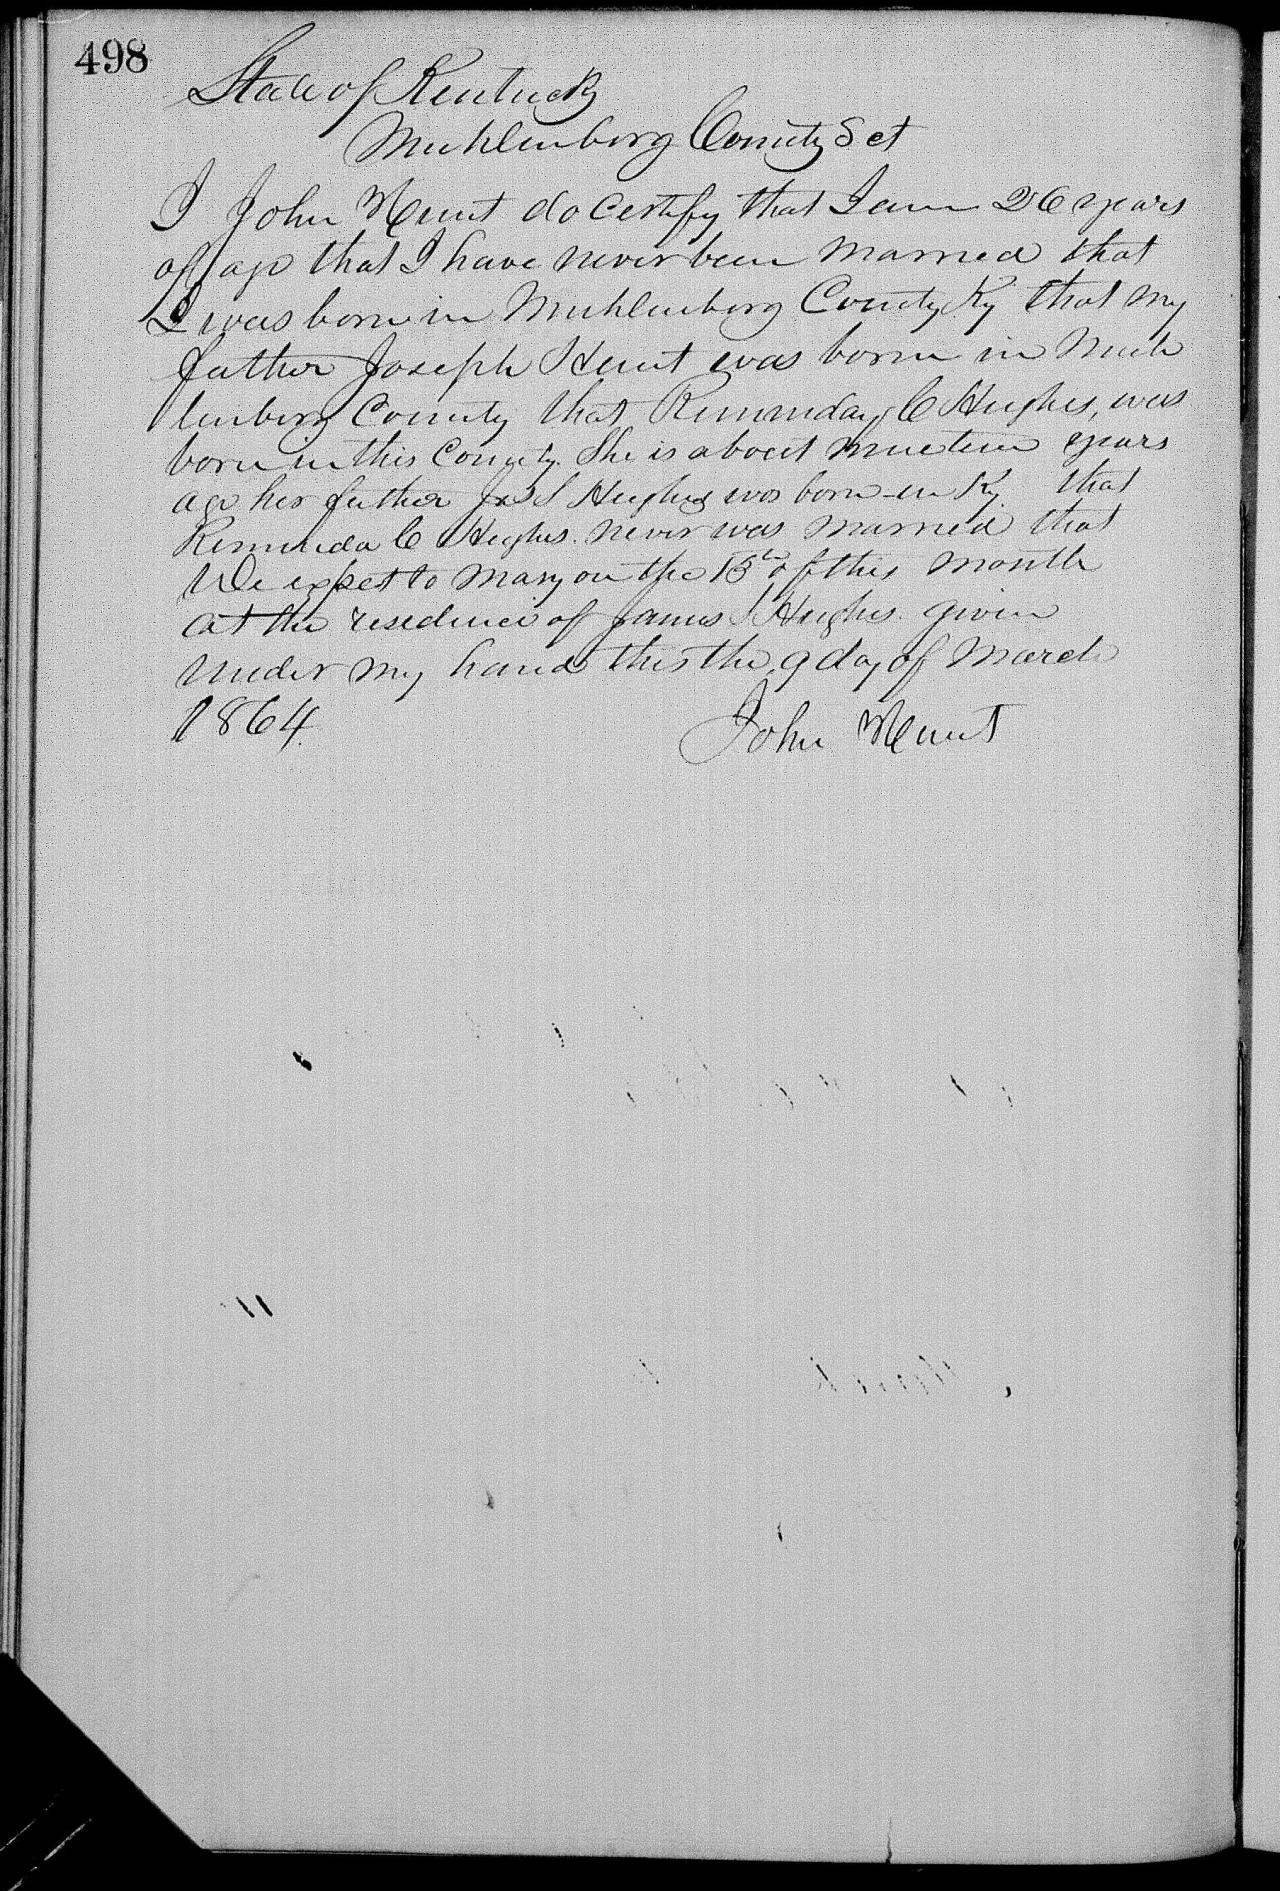 498
State of Kentucky
Muhlenberg County Sct
I John Hunt do certify that I am 26 years
of age that I have never been married that
I was born in Muhlenberg County Ky that my
father Joseph Hunt was born in Muh
lenberg County that C Hughes, was
born in this County. She is about nineteen years
age her father Jas S Hughes was born in Ky that
C Hughes. never was married that
We expect to mary on the 15th of this month
at the residence of James S Hughes. given
under my hand this the 9 day of March
1864.
John Hunt